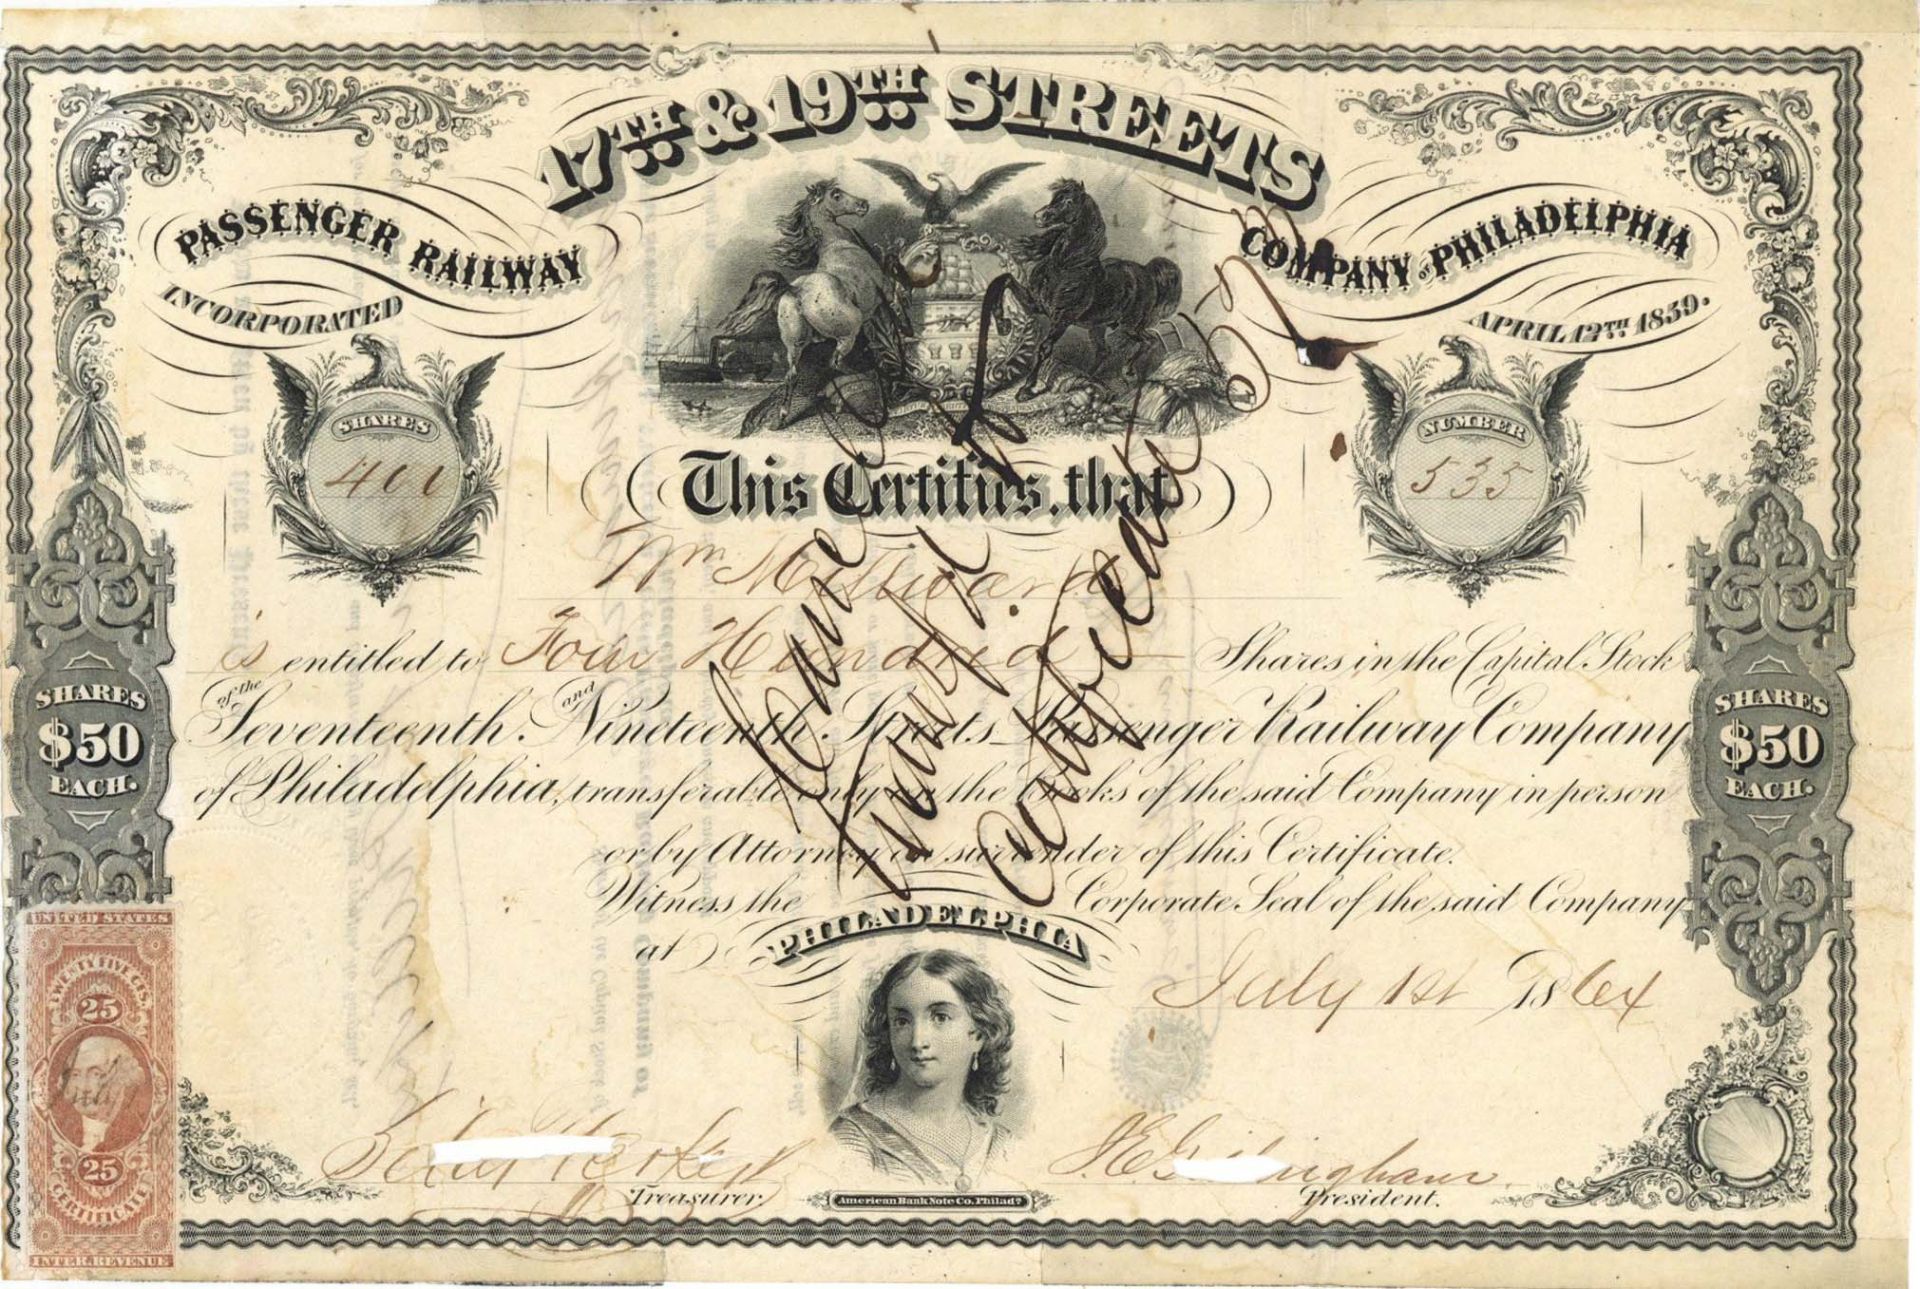 17TH & 19TH STREETS
PASSENGER RAILWAY
COMPANY OF PHILADELPHIA
INCORPORATED
APRIL 12TH 1859.
SHARES
400
NUMBER
535
This Certifies, that
Wm Millward
is entitled to Four Hundred Shares in the Capital Stock
of the Seventeenth and Nineteenth Streets Passenger Railway Company
of Philadelphia, transferable only on the Books of the said Company in person
or by Attorney on surrender of this Certificate.
Witness the Corporate Seal of the said Company
at PHILADELPHIA
July 1st 1864
SHARES
$50
EACH.
SHARES
$50
EACH.
Cancelled
Transfd
Certificate
UNITED STATES
TWENTY FIVE CTS.
25
25
CERTIFICATE
INTER. REVENUE
Treasurer.
American Bank Note Co. Philada
President.